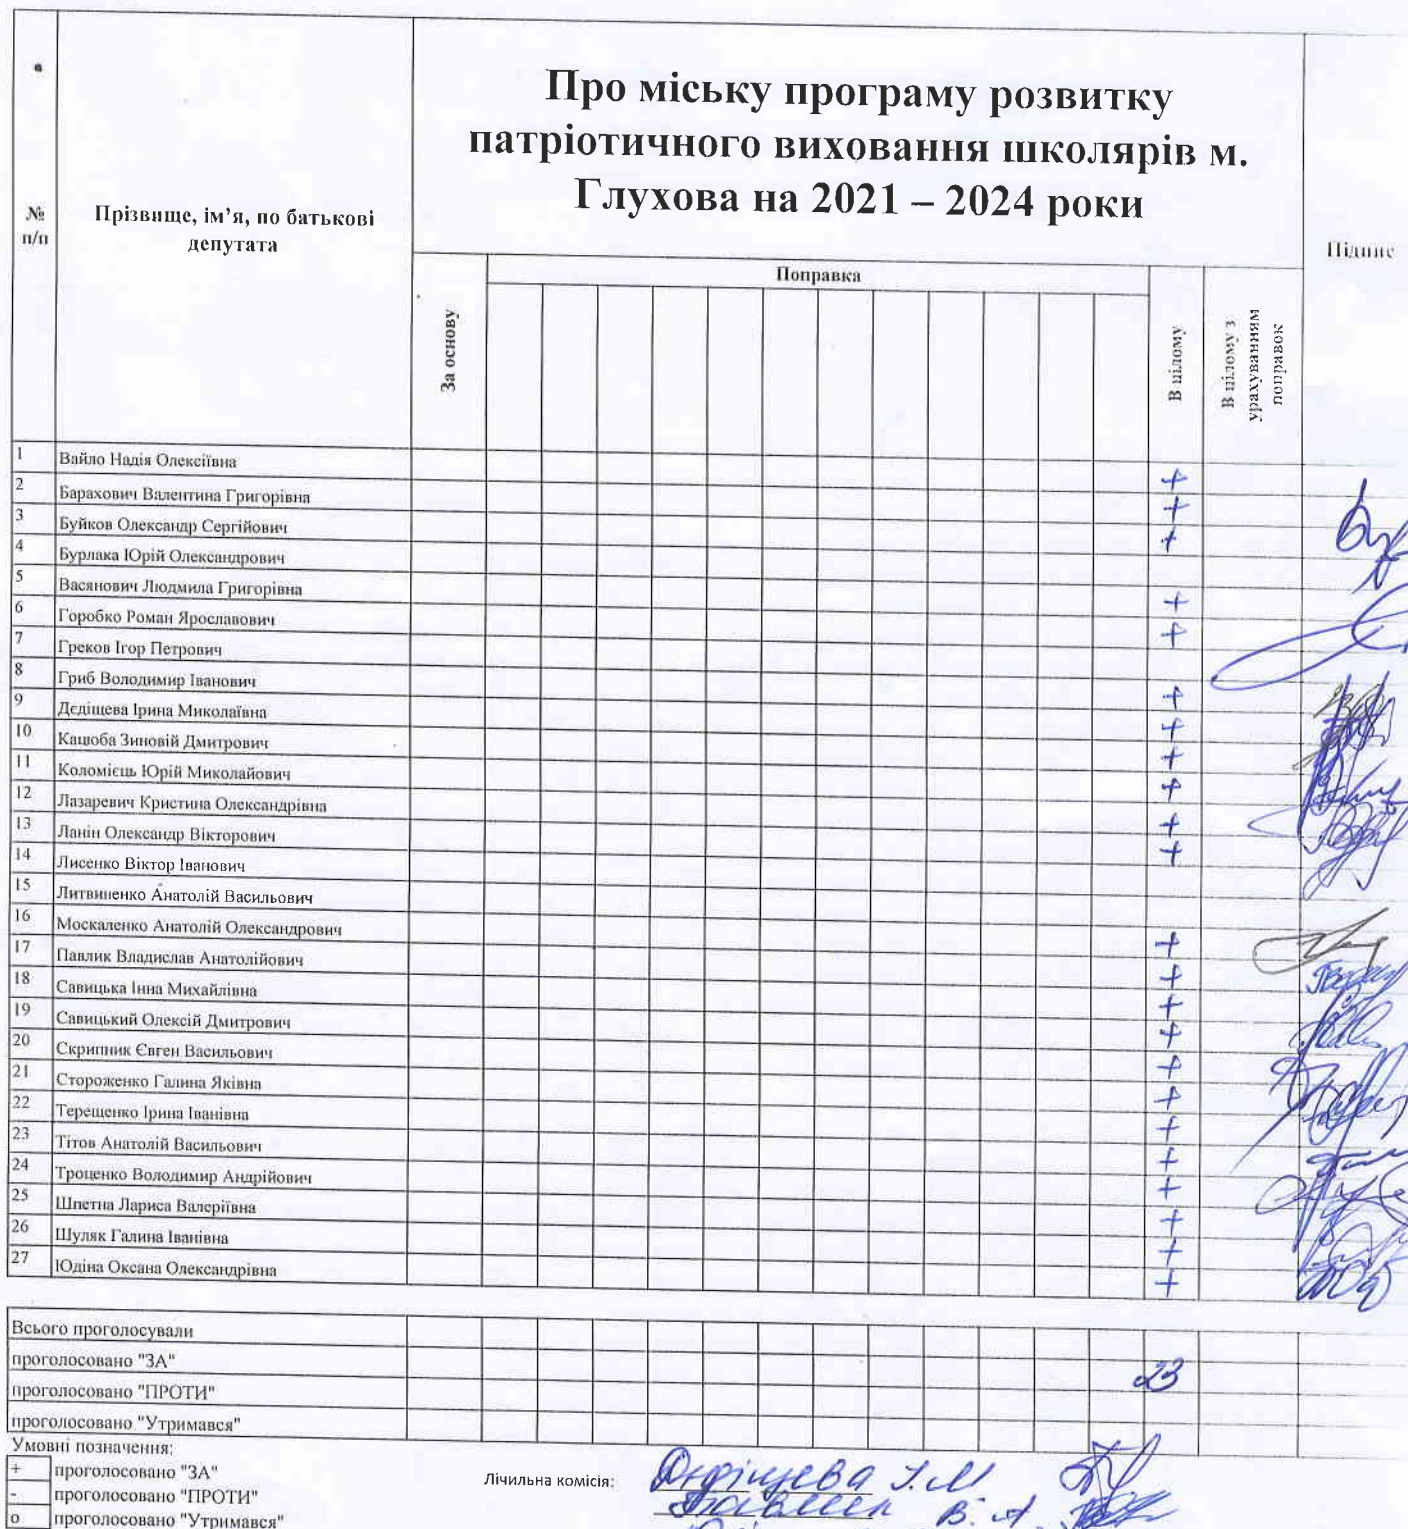 Про міську програму розвитку
патріотичного виховання школярів м.
Глухова на 2021 – 2024 роки
№
п/п
Прізвище, ім’я, по батькові
депутата
Підпис
За основу
Поправка
В цілому
В цілому з
урахуванням
поправок
1 Вайло Надія Олексіївна +
2 Барахович Валентина Григорівна +
3 Буйков Олександр Сергійович +
4 Бурлака Юрій Олександрович
5 Васянович Людмила Григорівна +
6 Горобко Роман Ярославович +
7 Греков Ігор Петрович
8 Гриб Володимир Іванович +
9 Дєдіщева Ірина Миколаївна +
10 Кацюба Зиновій Дмитрович +
11 Коломієць Юрій Миколайович +
12 Лазаревич Кристина Олександрівна +
13 Ланін Олександр Вікторович +
14 Лисенко Віктор Іванович
15 Литвиненко Анатолій Васильович
16 Москаленко Анатолій Олександрович +
17 Павлик Владислав Анатолійович +
18 Савицька Інна Михайлівна +
19 Савицький Олексій Дмитрович +
20 Скрипник Євген Васильович +
21 Стороженко Галина Яківна +
22 Терещенко Ірина Іванівна +
23 Тітов Анатолій Васильович +
24 Троценко Володимир Андрійович +
25 Шпетна Лариса Валеріївна +
26 Шуляк Галина Іванівна +
27 Юдіна Оксана Олександрівна +
Всього проголосували
проголосовано "ЗА" 23
проголосовано "ПРОТИ"
проголосовано "Утримався"
Умовні позначення:
+ проголосовано "ЗА"
- проголосовано "ПРОТИ"
о проголосовано "Утримався"
Лічильна комісія: Дєдіщева І.М
Павлик В.А.